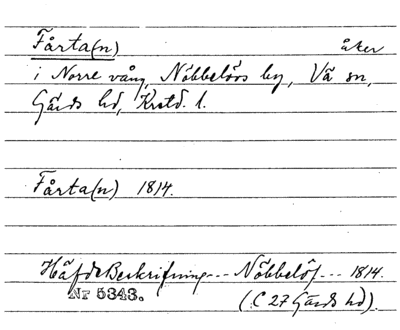 Fårta(n) åker
i Norre vång, Nöbbelövs by, Vä sn,
Gärds hd, Krstd. l.
Fårta(n) 1814.
Häfde Beskrifning --- Nöbbelöf --- 1814.
Nr 5343. (C 27 Gärds hd).